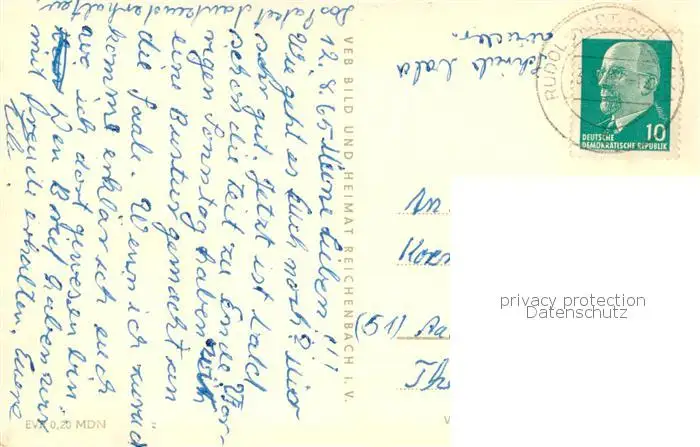 Das Paket dankend erhalten.
12.8.65 Meine Lieben!!!
Wie geht es Euch noch? Mir
sehr gut. Jetzt ist bald
schon die Zeit zu Ende. Vor-
igen Sonntag haben wir
eine Bustour gemacht an
die Saale. Wenn ich zurück
komme erklär ich euch
wo ich dort gewesen bin
Den Brief haben wir
mit Freude erhalten. Euere
VEB BILD UND HEIMAT REICHENBACH I. V.
EVP 0,20 MDN
Schreib bald
wieder.
RUDOLSTADT
DEUTSCHE
DEMOKRATISCHE REPUBLIK
10
An
(51) Aa
privacy protection
Datenschutz
V